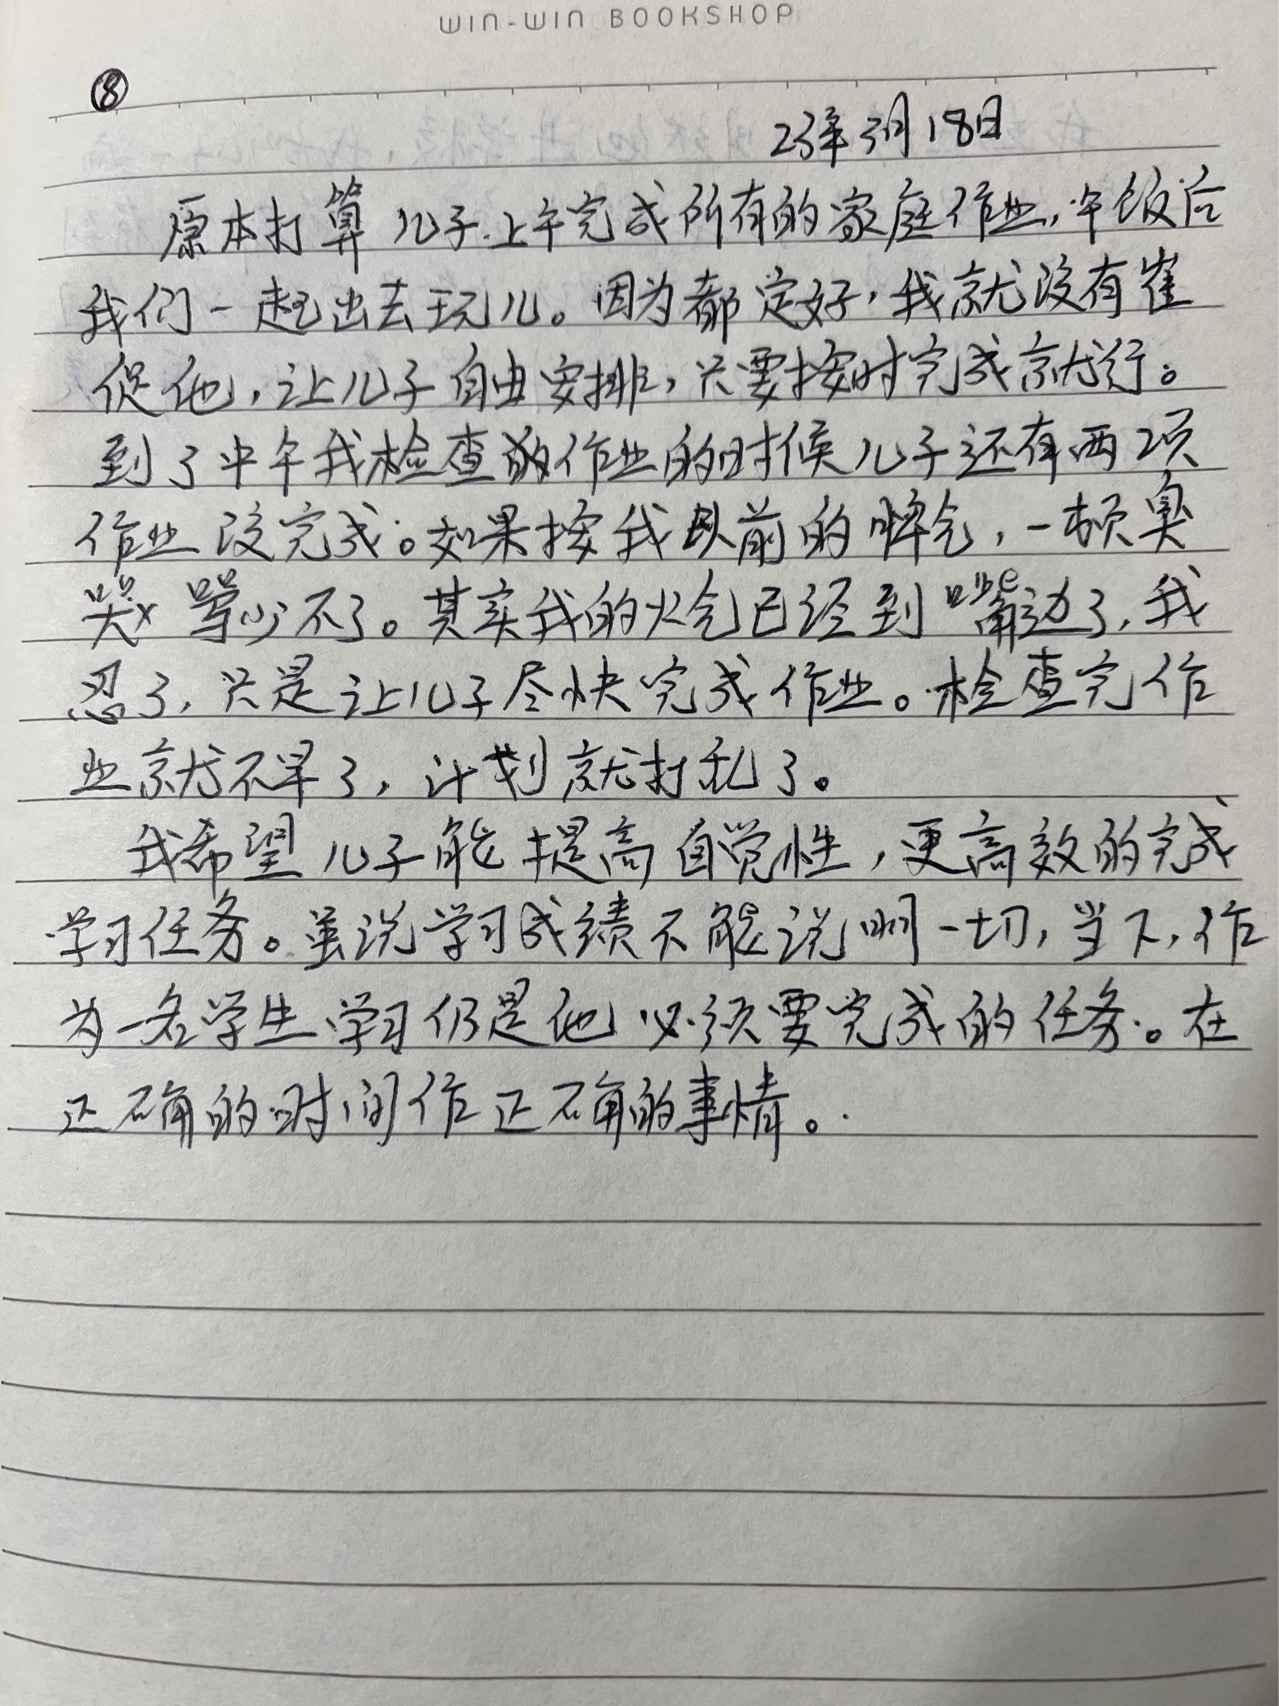 WIN-WIN BOOKSHOP
⑧
23年3月18日
原本打算儿子上午完成所有的家庭作业，午饭后
我们一起出去玩儿。因为都定好，我就没有崔
促他，让儿子自由安排，只要按时完成就行。
到了中午我检查的作业的时候儿子还有两项
作业没完成。如果按我以前的脾气，一顿臭
骂少不了。其实我的火气已经到嘴边了，我
忍了，只是让儿子尽快完成作业。检查完作
业就不早了，计划就打乱了。
我希望儿子能提高自觉性，更高效的完成
学习任务。虽说学习成绩不能说明一切，当下，作
为一名学生学习仍是他必须要完成的任务。在
正确的时间作正确的事情。